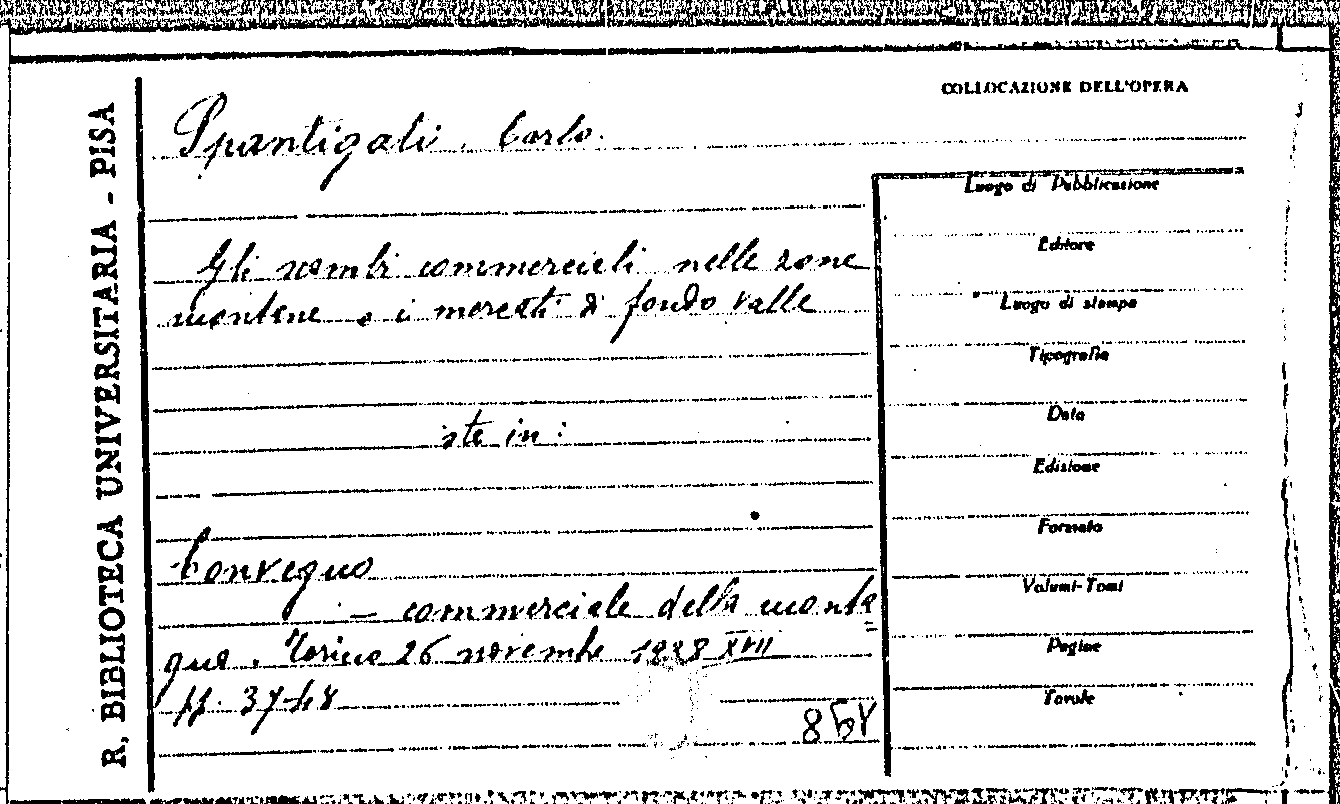 R. BIBLIOTECA UNIVERSITARIA - PISA
COLLOCAZIONE DELL'OPERA
Spantigati, Carlo.
Gli scambi commerciali nelle zone
montane e i mercati di fondo valle
ste in:
Convegno
- commerciale della monta
gna. Torino 26 novembre 1938 XVII
pp. 37-48
Luogo di Pubblicazione
Editore
Luogo di stampa
Tipografia
Data
Edizione
Formato
Volumi-Tomi
Pagine
Tavole